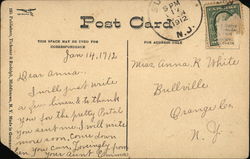 Post Card
THIS SPACE MAY BE USED FOR
CORRESPONDENCE
FOR ADDRESS ONLY
5 PM
1912
N.J.
Jan 14, 1912
Dear Anna:-
I will just write
a few lines & to thank
you for the pretty Postal
you sent me. I will write
more soon. Come down
when you can. Lovingly from
your Aunt Emma
Miss Anna R White
Bullville
Orange Co.
N. Y.